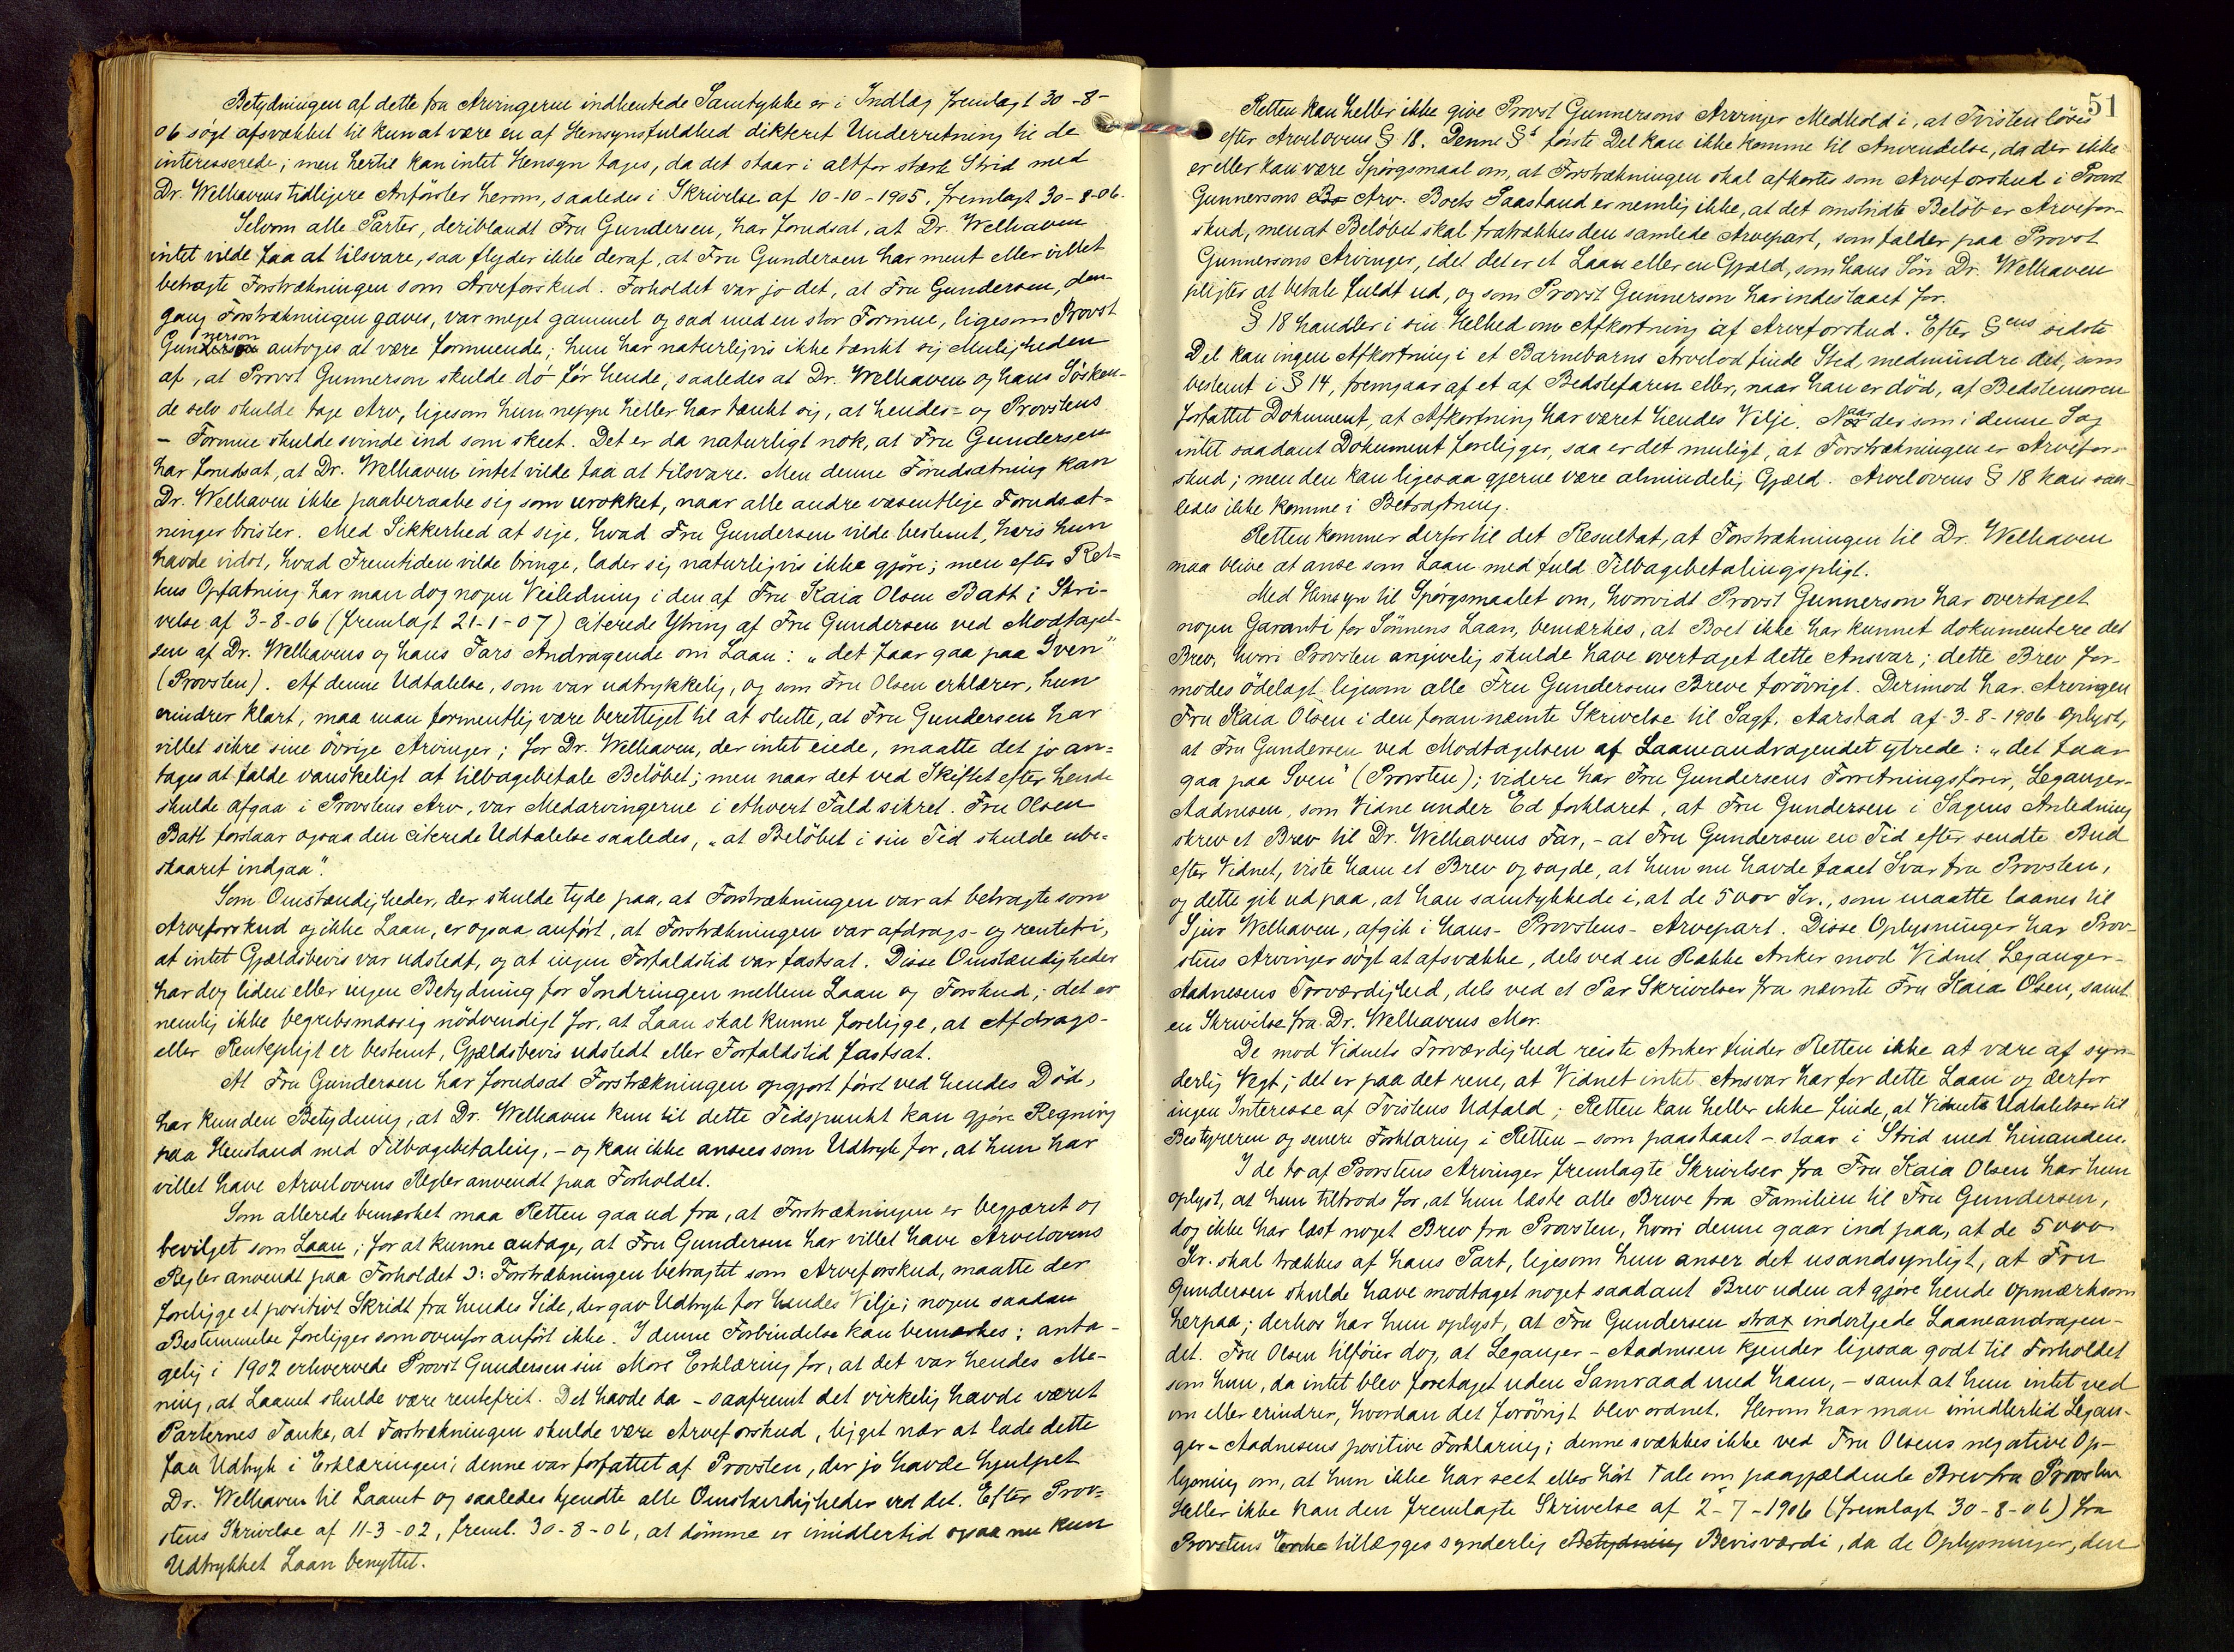 Betydningen af dette fra Arvingerne indhentede Samtykke er i Indlæg fremlagt 30-8-
06 søgt afsvækket til kun at være en af Hensynsfuldhed dikteret Underretning til de
interesserede; men hertil kan intet Hensyn tages, da det staar i altfor stærk Strid med
Dr. Welhavens tidligere Anførsler herom, saaledes i Skrivelse af 10-10-1905, fremlagt 30-8-06.
Selvom alle Parter, deriblandt Fru Gundersen, har forudsat, at Dr. Welhaven
intet vilde faa at tilsvare, saa flyder ikke deraf, at Fru Gundersen har ment eller villet
betragte Forstrækningen som Arveforskud. Forholdet var jo det, at Fru Gundersen, den-
gang Forstrækningen gaves, var meget gammel og sad med en stor Formue, ligesom Provst
Gunnerson antoges at være formuende; hun har naturligvis ikke tænkt sig Muligheden
af, at Provst Gunnerson skulde dö för hende, saaledes at Dr. Welhaven og hans Sösken-
de selv skulde tage Arv, ligesom hun neppe heller har tænkt sig, at hendes- og Provstens
- Formue skulde svinde ind som skeet. Det er da naturligt nok, at Fru Gundersen
har forudsat, at Dr. Welhaven intet vilde faa at tilsvare. Men denne Forudsætning kan
Dr. Welhaven ikke paaberaabe sig som urokket, naar alle andre væsentlige Forudsæt-
ninger brister. Med Sikkerhed at sige, hvad Fru Gundersen vilde bestemt, hvis hun
havde vidst, hvad Fremtiden vilde bringe, lader sig naturligvis ikke gjöre; men efter Ret-
tens Opfatning har man dog nogen Veiledning i den af Fru Kaia Olsen Batt i Skri-
velse af 3-8-06 (fremlagt 21-1-07) citerede Ytring af Fru Gundersen ved Modtagel-
sen af Dr. Welhavens og hans Fars Andragende om Laan: „det faar gaa paa Sven"
(Provsten). Af denne Udtalelse, som var udtrykkelig, og som Fru Olsen erklærer, hun
erindrer klart, maa man formentlig være berettiget til at slutte, at Fru Gundersen har
villet sikre sine övrige Arvinger; for Dr. Welhaven, der intet eiede, maatte det jo an-
tages at falde vanskeligt at tilbagebetale Belöbet; men naar det ved Skiftet efter hende
skulde afgaa i Provstens Arv, var Medarvingerne i ethvert Fald sikret. Fru Olsen
Batt forstaar ogsaa den citerede Udtalelse saaledes, „at Belöbet i sin Tid skulde ube-
skaaret indgaa".
Som Omstændigheder, der skulde tyde paa, at Forstrækningen var at betragte som
Arveforskud og ikke Laan, er ogsaa anfört, at Forstrækningen var afdrags- og rentefri,
at intet Gjældsbevis var udstedt, og at ingen Forfaldstid var fastsat. Disse Omstændigheder
har dog liden eller ingen Betydning for Sondringen mellem Laan og Forskud; det er
nemlig ikke begrebsmæssig nödvendigt for, at Laan skal kunne foreligge, at Afdrags-
eller Rentepligt er bestemt, Gjældsbevis udstedt eller Forfaldstid fastsat.
At Fru Gundersen har forudsat Forstrækningen opgjort först ved hendes Död,
har kun den Betydning, at Dr. Welhaven kun til dette Tidspunkt kan gjöre Regning
paa Henstand med Tilbagebetaling, - og kan ikke ansees som Udtryk for, at hun har
villet have Arvelovens Regler anvendt paa Forholdet.
Som allerede bemærket maa Retten gaa ud fra, at Forstrækningen er begjæret og
bevilget som Laan; for at kunne antage, at Fru Gundersen har villet have Arvelovens
Regler anvendt paa Forholdet ɔ: Forstrækningen betragtet som Arveforskud, maatte der
foreligge et positivt Skridt fra hendes Side, der gav Udtryk for hendes Vilje; nogen saadan
Bestemmelse foreligger som ovenfor anfört ikke. I denne Forbindelse kan bemærkes: anta-
gelig i 1902 erhvervede Provst Gundersen sin Mors Erklæring for, at det var hendes Me-
ning, at Laanet skulde være rentefrit. Det havde da - saafremt det virkelig havde været
Parternes Tanke, at Forstrækningen skulde være Arveforskud, ligget nær at lade dette
faa Udtryk i Erklæringen; denne var forfattet af Provsten, der jo havde hjulpet
Dr. Welhaven til Laanet og saaledes kjendte alle Omstændigheder ved det. Efter Prov-
stens Skrivelse af 11-3-02, freml. 30-8-06, at dömme er imidlertid ogsaa nu kun
Udtrykket Laan benyttet.
51
Retten kan heller ikke give Provst Gunnersons Arvinger Medhold i, at Tvisten löses
efter Arvelovens § 18. Denne §s förste Del kan ikke komme til Anvendelse, da der ikke
er eller kan være Spörgsmaal om, at Forstrækningen skal afkortes som Arveforskud i Provst
Gunnersons Bo Arv. Boets Paastand er nemlig ikke, at det omstridte Belöb er Arvefor-
skud, men at Belöbet skal fratrækkes den samlede Arvepart, som falder paa Provst
Gunnersons Arvinger, idet det er et Laan eller en Gjæld, som hans Sön Dr. Welhaven
pligter at betale fuldt ud, og som Provst Gunnerson har indestaaet for.
§ 18 handler i sin Helhed om Afkortning af Arveforskud. Efter §ens sidste
Del kan ingen Afkortning i et Barnebarns Arvelod finde Sted, medmindre det, som
bestemt i § 14, fremgaar af et af Bedstefaren eller, naar han er död, af Bedstemoren
forfattet Dokument, at Afkortning har været hendes Vilje. Naar der som i denne Sag
intet saadant Dokument foreligger, saa er det muligt, at Forstrækningen er Arvefor-
skud; men den kan ligesaa gjerne være almindelig Gjæld. Arvelovens § 18 kan saa-
ledes ikke komme i Betragtning.
Retten kommer derfor til det Resultat, at Forstrækningen til Dr. Welhaven
maa blive at anse som Laan med fuld Tilbagebetalingspligt.
Med Hensyn til Spörgsmaalet om, hvorvidt Provst Gunnerson har overtaget
nogen Garanti for Sönnens Laan, bemærkes, at Boet ikke har kunnet dokumentere det
Brev, hvori Provsten angivelig skulde have overtaget dette Ansvar; dette Brev for-
modes ödelagt ligesom alle Fru Gundersens Breve forövrigt. Derimod har Arvingen
Fru Kaia Olsen i den forannævnte Skrivelse til Sagf. Aarstad af 3-8-1906 oplyst,
at Fru Gundersen ved Modtagelsen af Laaneandragendet ytrede: „det faar
gaa paa Sven" (Provsten); videre har Fru Gundersens Forretningsförer, Leganger-
Aadnesen, som Vidne under Ed forklaret, at Fru Gundersen i Sagens Anledning
skrev et Brev til Dr. Welhavens Far, - at Fru Gundersen en Tid efter sendte Bud
efter Vidnet, viste ham et Brev og sagde, at hun nu havde faaet Svar fra Provsten,
og dette gik ud paa, at han samtykkede i, at de 5000 Kr., som maatte laanes til
Sjur Welhaven, afgik i hans- Provstens- Arvepart. Disse Oplysninger har Prov-
stens Arvinger sögt at afsvække, dels ved en Række Anker mod Vidnet Leganger-
Aadnesens Troværdighed, dels ved et Par Skrivelser fra nævnte Fru Kaia Olsen, samt
en Skrivelse fra Dr. Welhavens Mor.
De mod Vidnets Troværdighed reiste Anker finder Retten ikke at være af syn-
derlig Vegt; det er paa det rene, at Vidnet intet Ansvar har for dette Laan og derfor
ingen Interesse af Tvistens Udfald; Retten kan heller ikke finde, at Vidnets Udtalelser til
Bestyreren og senere Forklaring i Retten - som paastaaet - staar i Strid med hinanden.
I de to af Provstens Arvinger fremlagte Skrivelser fra Fru Kaia Olsen har hun
oplyst, at hun tiltrods for, at hun læste alle Breve fra Familien til Fru Gundersen,
dog ikke har læst noget Brev fra Provsten, hvori denne gaar ind paa, at de 5000
Kr. skal trækkes af hans Part, ligesom hun anser det usandsynligt, at Fru
Gundersen skulde have modtaget noget saadant Brev uden at gjöre hende opmærksom
herpaa; derhos har hun oplyst, at Fru Gundersen strax indvilgede Laaneandragen-
det. Fru Olsen tilföier dog, at Leganger-Aadnesen kjender ligesaa godt til Forholdet
som hun, da intet blev foretaget uden Samraad med ham, - samt at hun intet ved
om eller erindrer, hvordan det forövrigt blev ordnet. Herom har man imidlertid Legan-
ger-Aadnesens positive Forklaring; denne svækkes ikke ved Fru Olsens negative Op-
lysning om, at hun ikke har seet eller hört Tale om paagjældende Brev fra Provsten
Heller ikke kan den fremlagte Skrivelse af 2-7-1906 (fremlagt 30-8-06) fra
Provstens Enke tillægges synderlig Betydning Bevisværdi, da de Oplysninger, den